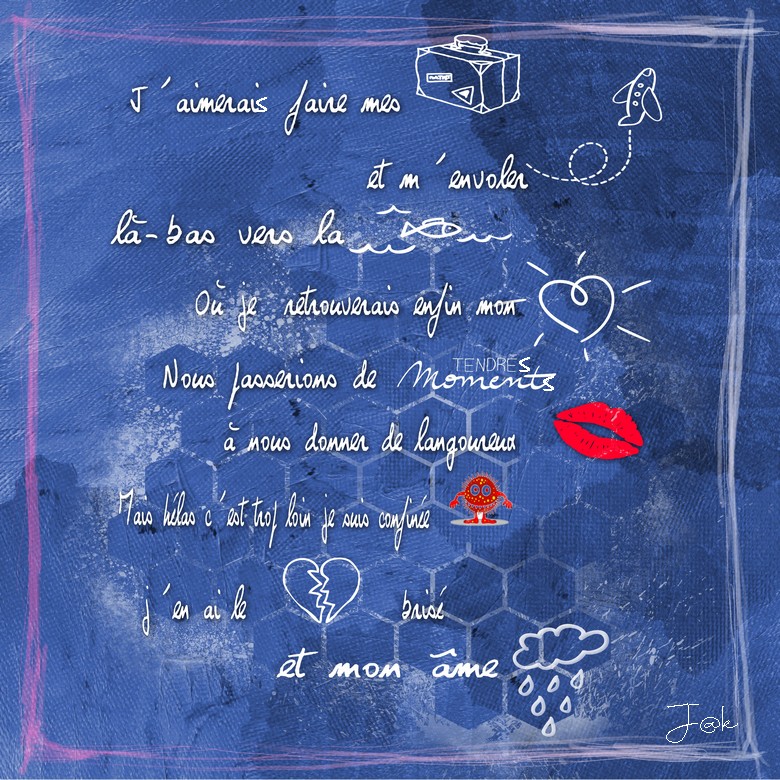 J'aimerais faire mes
et m'envoler
là-bas vers la
Où je retrouverais enfin mon
Nous passerions de
TENDRES
Moments
à nous donner de langoureux
Mais hélas c'est trop loin je suis confinée
j'en ai le brisé
et mon âme
J@k